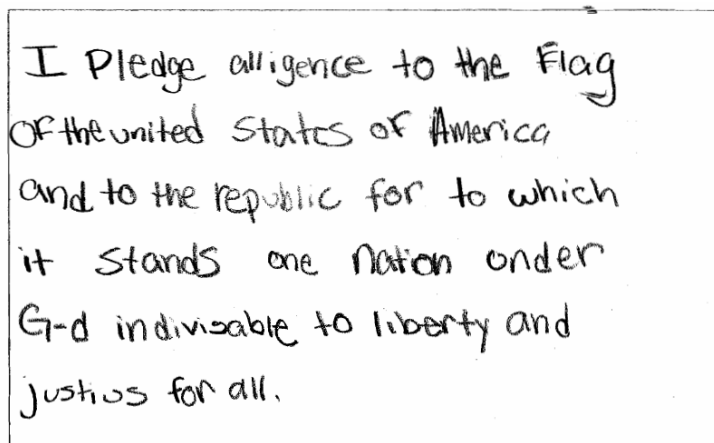 I Pledge alligence to the Flag
Of the united States of America
and to the republic for to which
it stands one nation onder
G-d indivisable to liberty and
justius for all.